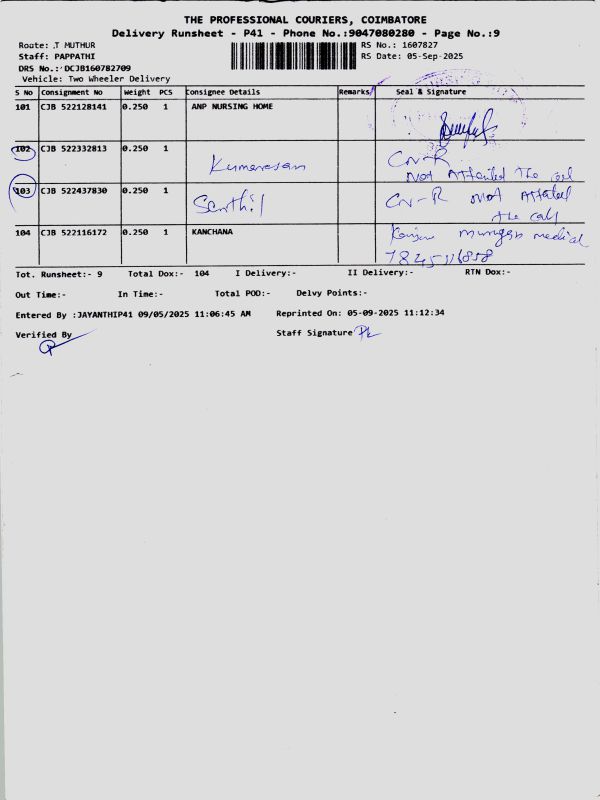 THE PROFESSIONAL COURIERS, COIMBATORE
Delivery Runsheet - P41 - Phone No.:9047080280 - Page No.:9
Route: .T MUTHUR
RS No.: 1607827
Staff: PAPPATHI
RS Date: 05-Sep-2025
DRS No.: DCJB160782709
Vehicle: Two Wheeler Delivery
S No Consignment No Weight PCS Consignee Details Remarks Seal & Signature
101 CJB 522128141 0.250 1 ANP NURSING HOME
102 CJB 522332813 0.250 1 Kumaresan CN-R
Not Attented The call
103 CJB 522437830 0.250 1 Senthil CN-R Not Attated
the call
104 CJB 522116172 0.250 1 KANCHANA murugan medical
7845116858
Tot. Runsheet:- 9 Total Dox:- 104 I Delivery:- II Delivery:- RTN Dox:-
Out Time:- In Time:- Total POD:- Delvy Points:-
Entered By :JAYANTHIP41 09/05/2025 11:06:45 AM Reprinted On: 05-09-2025 11:12:34
Verified By Staff Signature